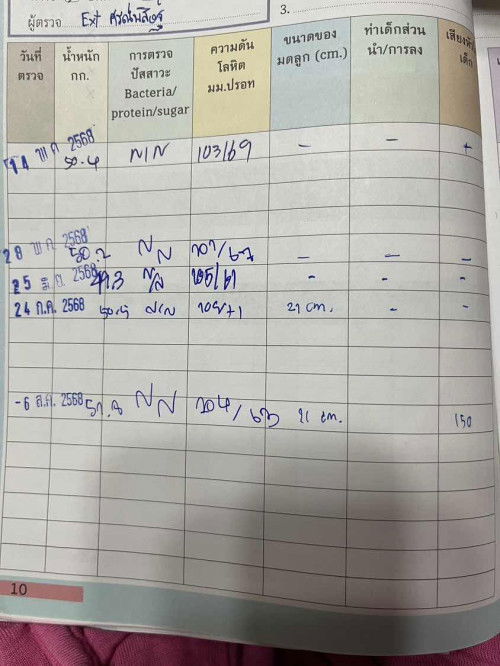 3.
ผู้ตรวจ Ext
วันที่ตรวจ น้ำหนัก กก. การตรวจปัสสาวะ Bacteria/protein/sugar ความดันโลหิต มม.ปรอท ขนาดของมดลูก (cm.) ท่าเด็กส่วนนำ/การลง เสียงหัวเด็ก
14 พ.ค. 2568 50.4 N/N 103/69 - - +
28 พ.ค. 2568 50.2 N N 107/67 - - -
25 มิ.ย. 2568 49.3 N/N - - -
24 ก.ค. 2568 50.5 N/N 21 cm. - -
- 6 ส.ค. 2568 N N 104/63 21 cm. 150
10